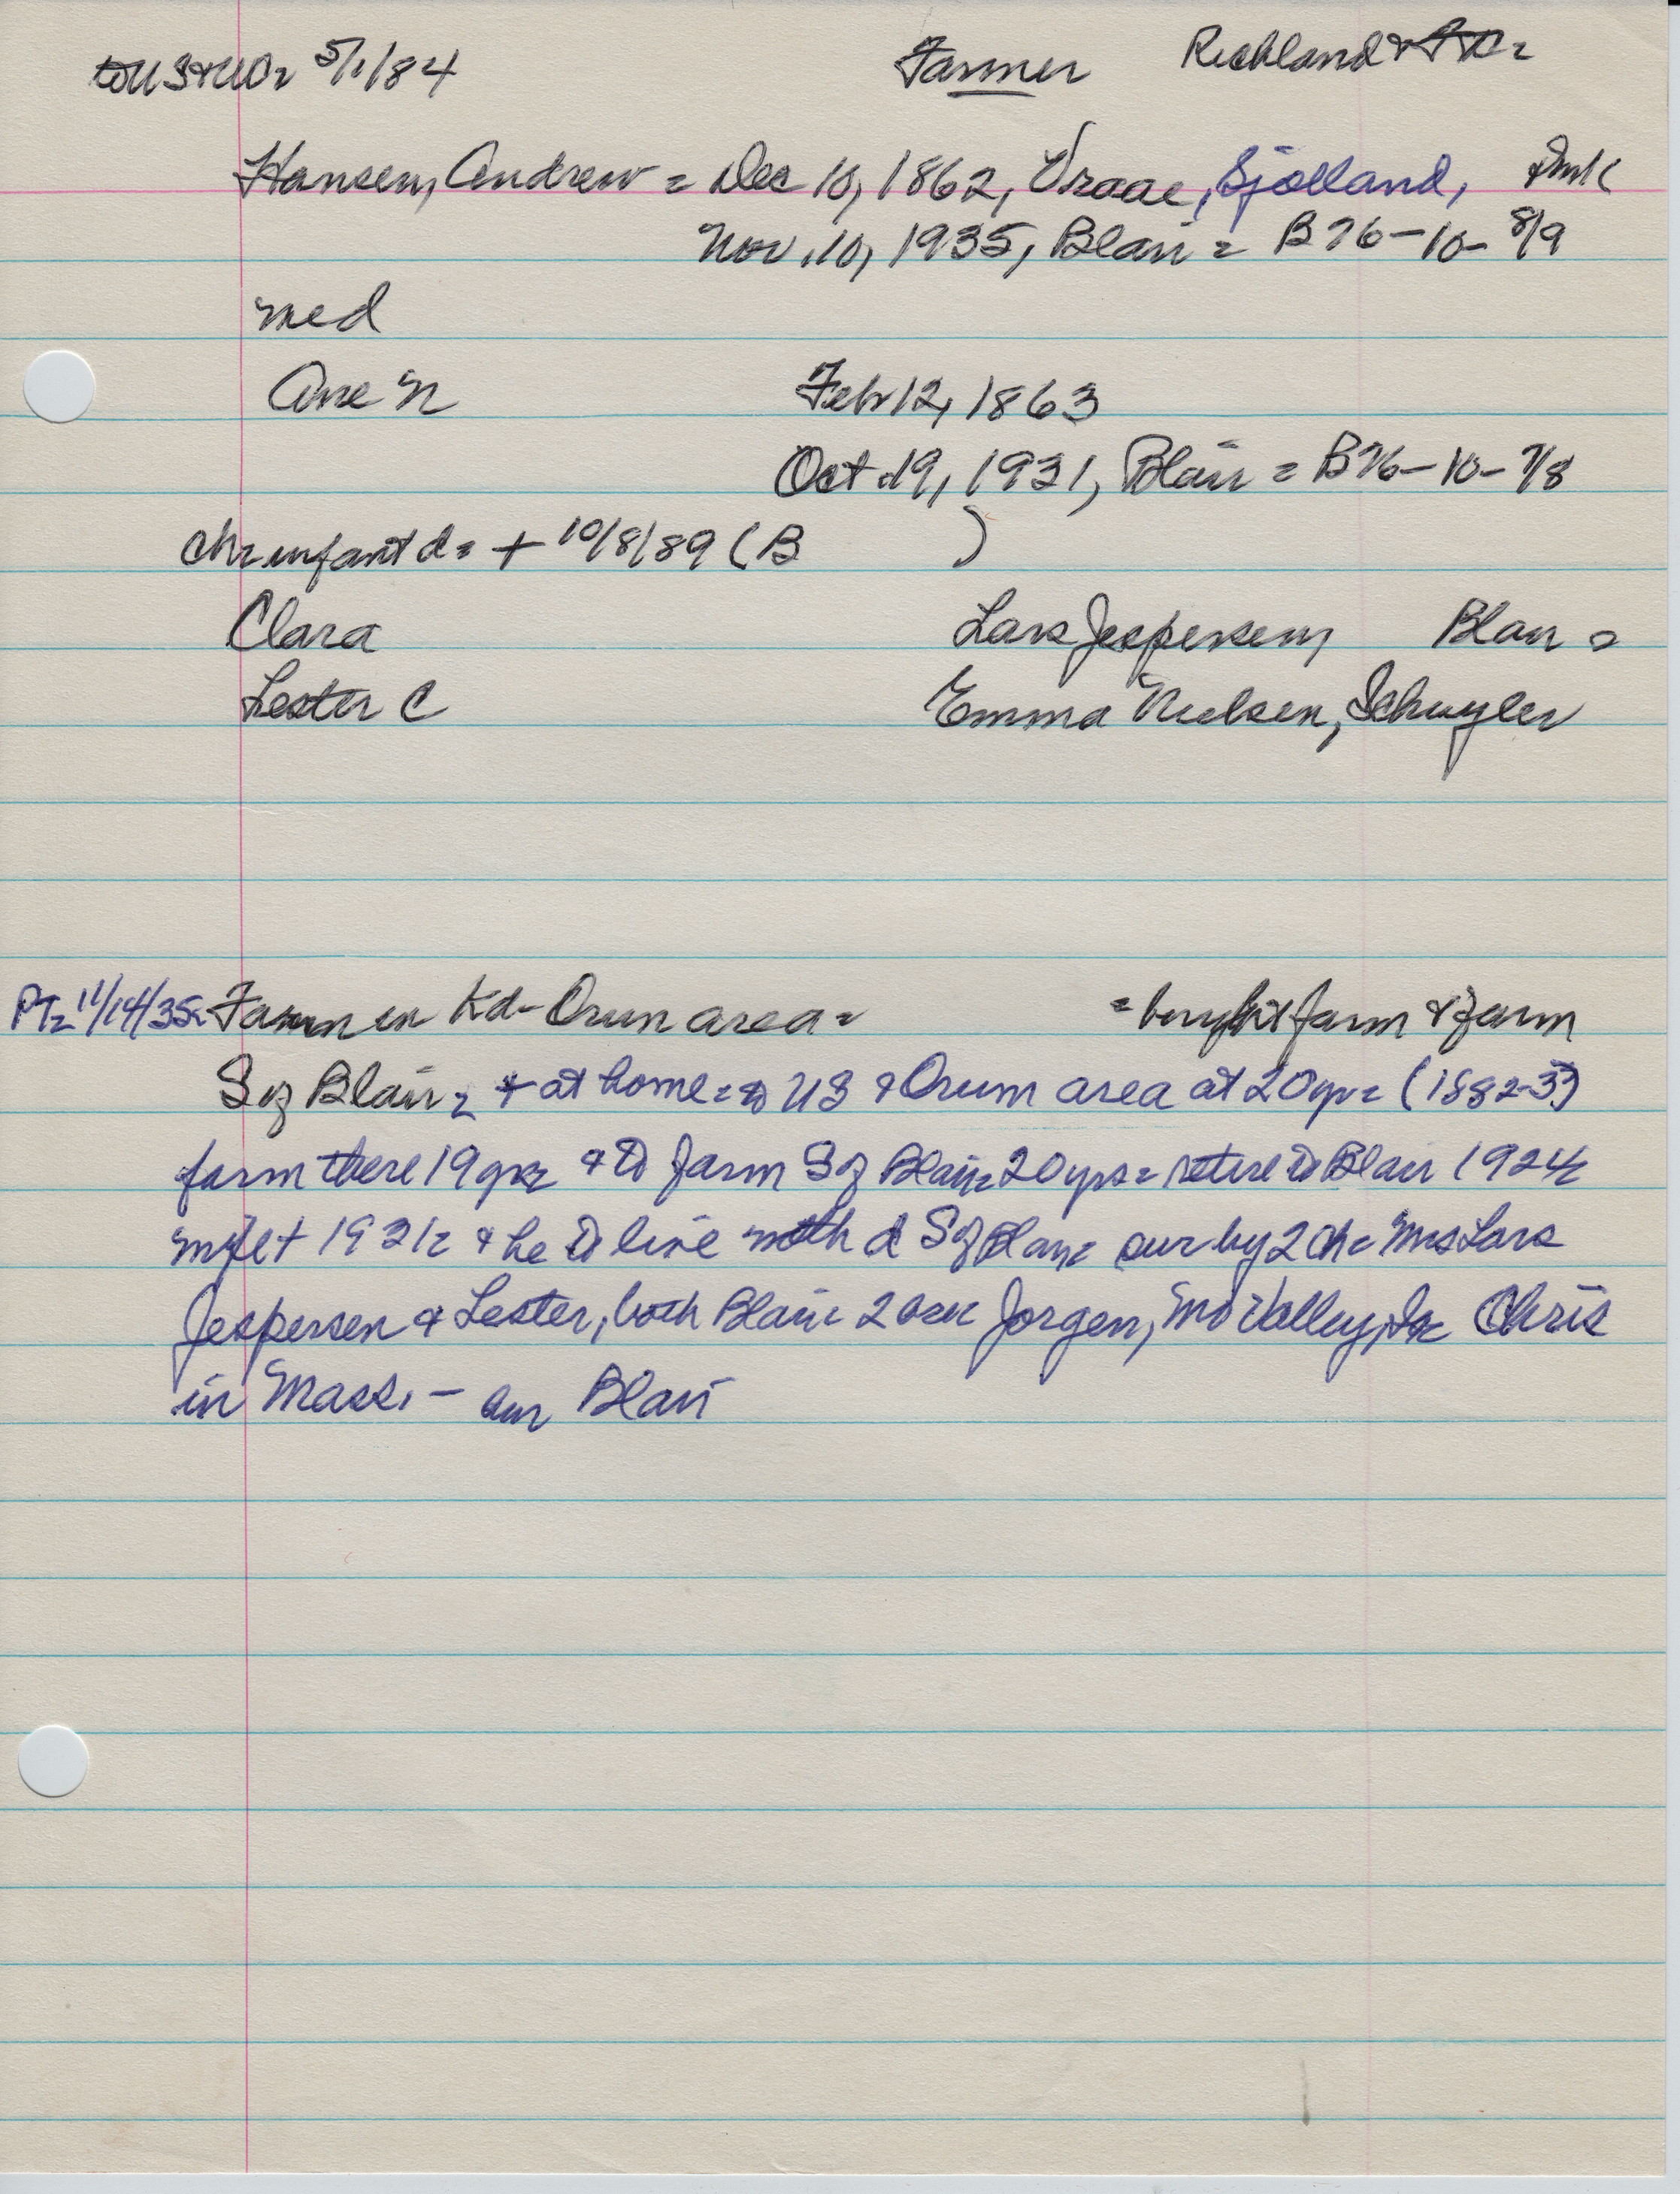 to US & WC = 5/1/84 Farmer Richland &
Hansen, Andrew = Dec 10, 1862, Vraae, Sjolland, Dmk
Nov. 10, 1935, Blair = B 76-10-8/9
med
Ane N Feb 12, 1863
Oct 19, 1931, Blair = B76-10-7/8
ch = infant d = + 10/8/89 (B )
Clara Lars Jespersen, Blair =
Lester C Emma Nielsen, Schuyler
PT = 11/14/35 = Farm in Kd-Orum area = = farm & farm
S of Blair = + at home = to US & Orum area at 20 yr = (1882-3)
farm there 19 yrs = & to farm S of Blair = 20 yrs = retire to Blair 1924 =
wife + 1931 = & he to live with d S of Blair = sur by 2 ch = Mrs Lars
Jespersen & Lester, both Blair = 2 Jorgen, Mo Valley, Ia Chris
in Mass. - bur Blair